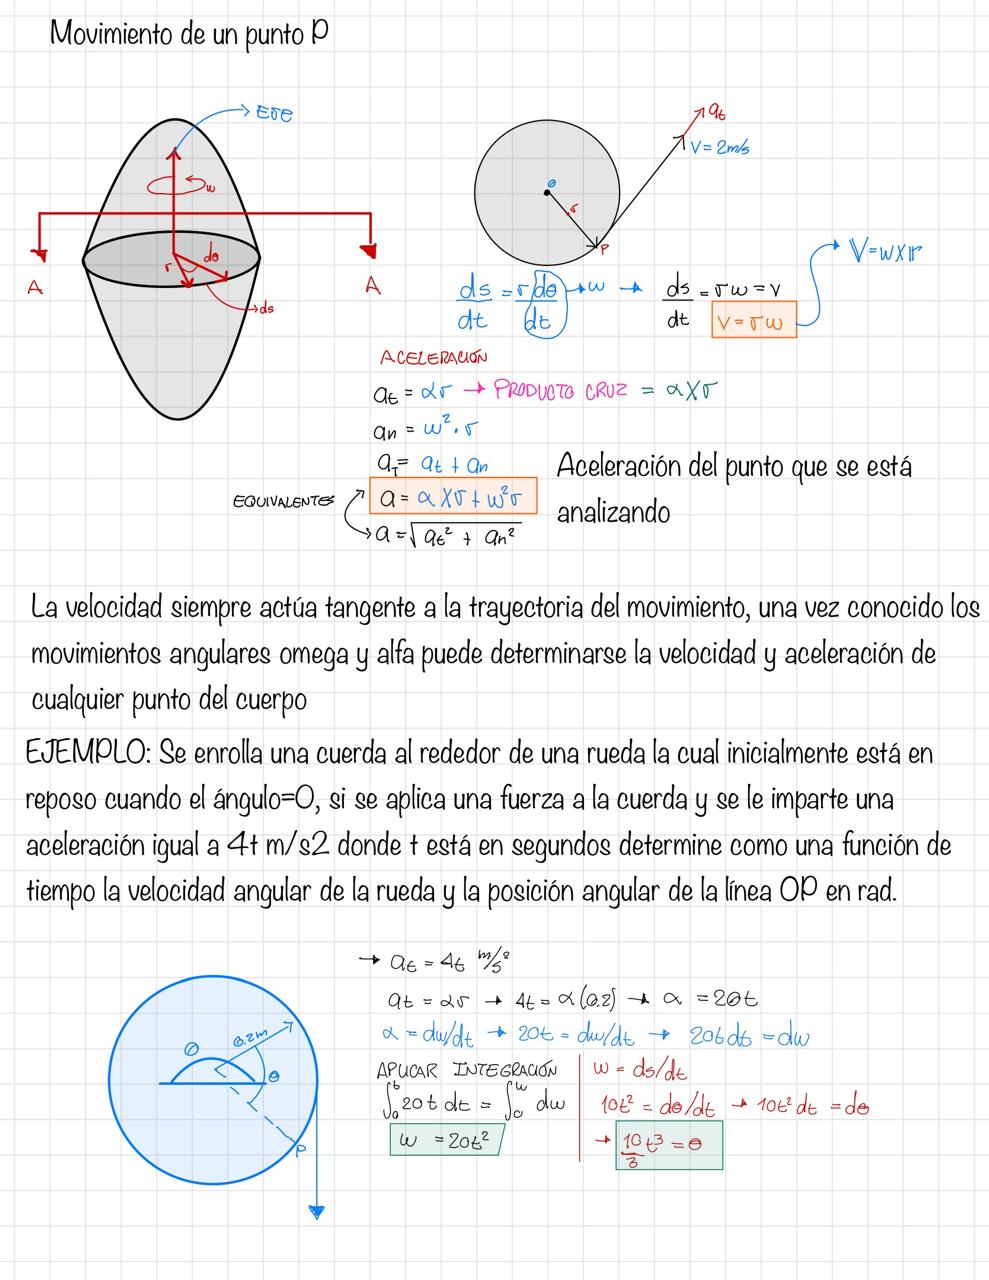 Movimiento de un punto P
EJE
w
dθ
r
ds
A
A
at
V = 2m/s
θ
r
P
ds/dt = r dθ/dt → w → ds/dt = rw = v
V = rw
V = w x r
ACELERACIÓN
at = αr → PRODUCTO CRUZ = α X r
an = w² · r
aT = at + an
Aceleración del punto que se está
EQUIVALENTES
a = α X r + w²r
analizando
a = √at² + an²
La velocidad siempre actúa tangente a la trayectoria del movimiento, una vez conocido los
movimientos angulares omega y alfa puede determinarse la velocidad y aceleración de
cualquier punto del cuerpo
EJEMPLO: Se enrolla una cuerda al rededor de una rueda la cual inicialmente está en
reposo cuando el ángulo=0, si se aplica una fuerza a la cuerda y se le imparte una
aceleración igual a 4t m/s2 donde t está en segundos determine como una función de
tiempo la velocidad angular de la rueda y la posición angular de la línea OP en rad.
→ at = 4t m/s²
at = αr → 4t = α(0.2) → α = 20t
α = dw/dt → 20t = dw/dt → 20t dt = dw
APLICAR INTEGRACIÓN
∫ 20t dt = ∫ dw
w = 20t²
w = ds/dt
10t² = dθ/dt → 10t² dt = dθ
→ 10/3 t³ = θ
0.2m
θ
θ
P